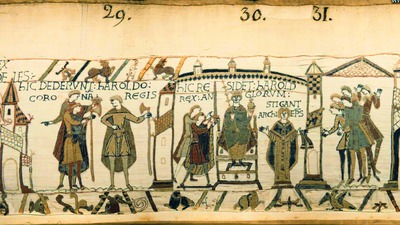 29. 30. 31.
HIC DEDERVNT: HAROLDO:
CORO NA REGIS
HIC RE SIDET: HAROLD
REX: AN GLORVM:
STIGANT
ARCHI EPS